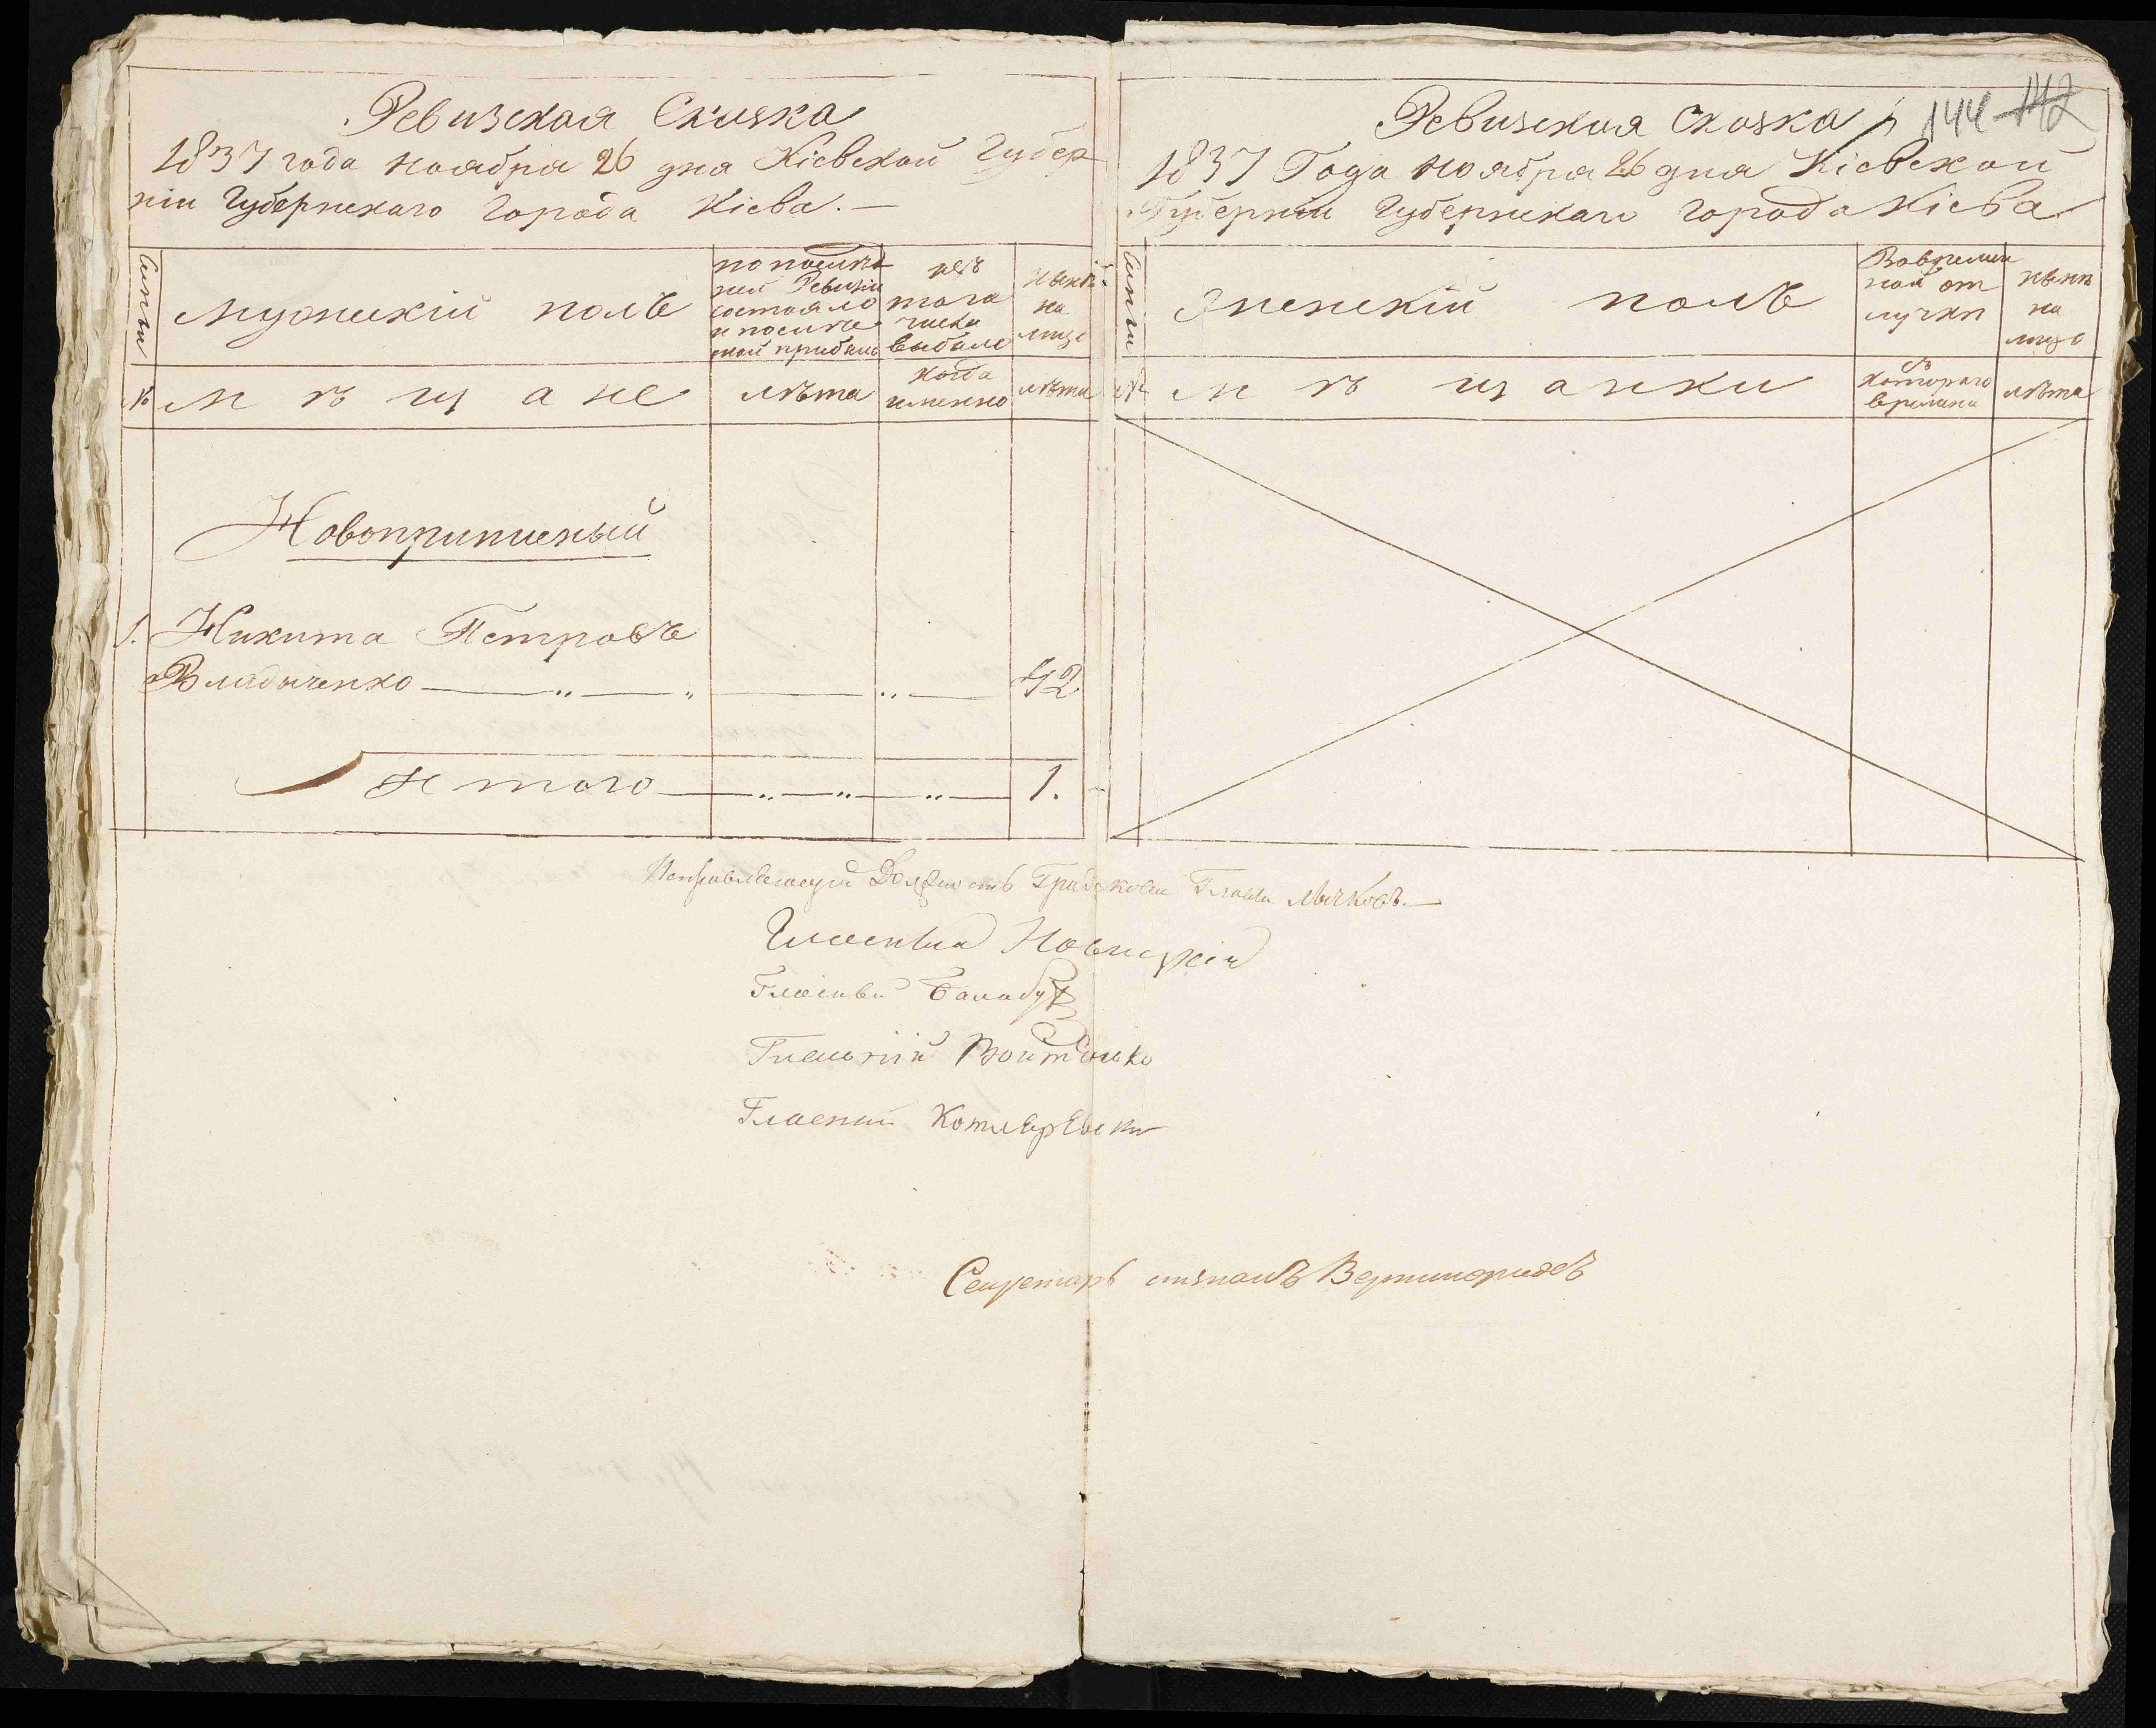 Ревизская Сказка
1837 года ноября 26 дня Кіевской Губер
ніи Губернскаго Города Кіева.—
мужескій полъ
по послѣд
ней Ревизіи
состояло
и послѣ
того прибыло
изъ
того
числа
выбыло
нынѣ
на
лицо
№
мѣщане
лѣта
когда
именно
лѣта
Новоприписный
1. Никита Петровъ
Владыченко — „ — „ — „ — 42
Итого — „ — „ — „ — 1.
Ревизская Сказка
144 142
1837 Года ноября 26 дня Кіевской
Губерніи Губернскаго города Кіева
женскій полъ
Вовремен
ной от
лучки
нынѣ
на
лицо
№
мѣщанки
съ
котораго
времени
лѣта
Исправляющій Должность Градской Главы Лычковъ.—
Гласный Новицкій
Гласный Балабуха
Гласный Войтенко
Гласный Котляревскій
Секретарь